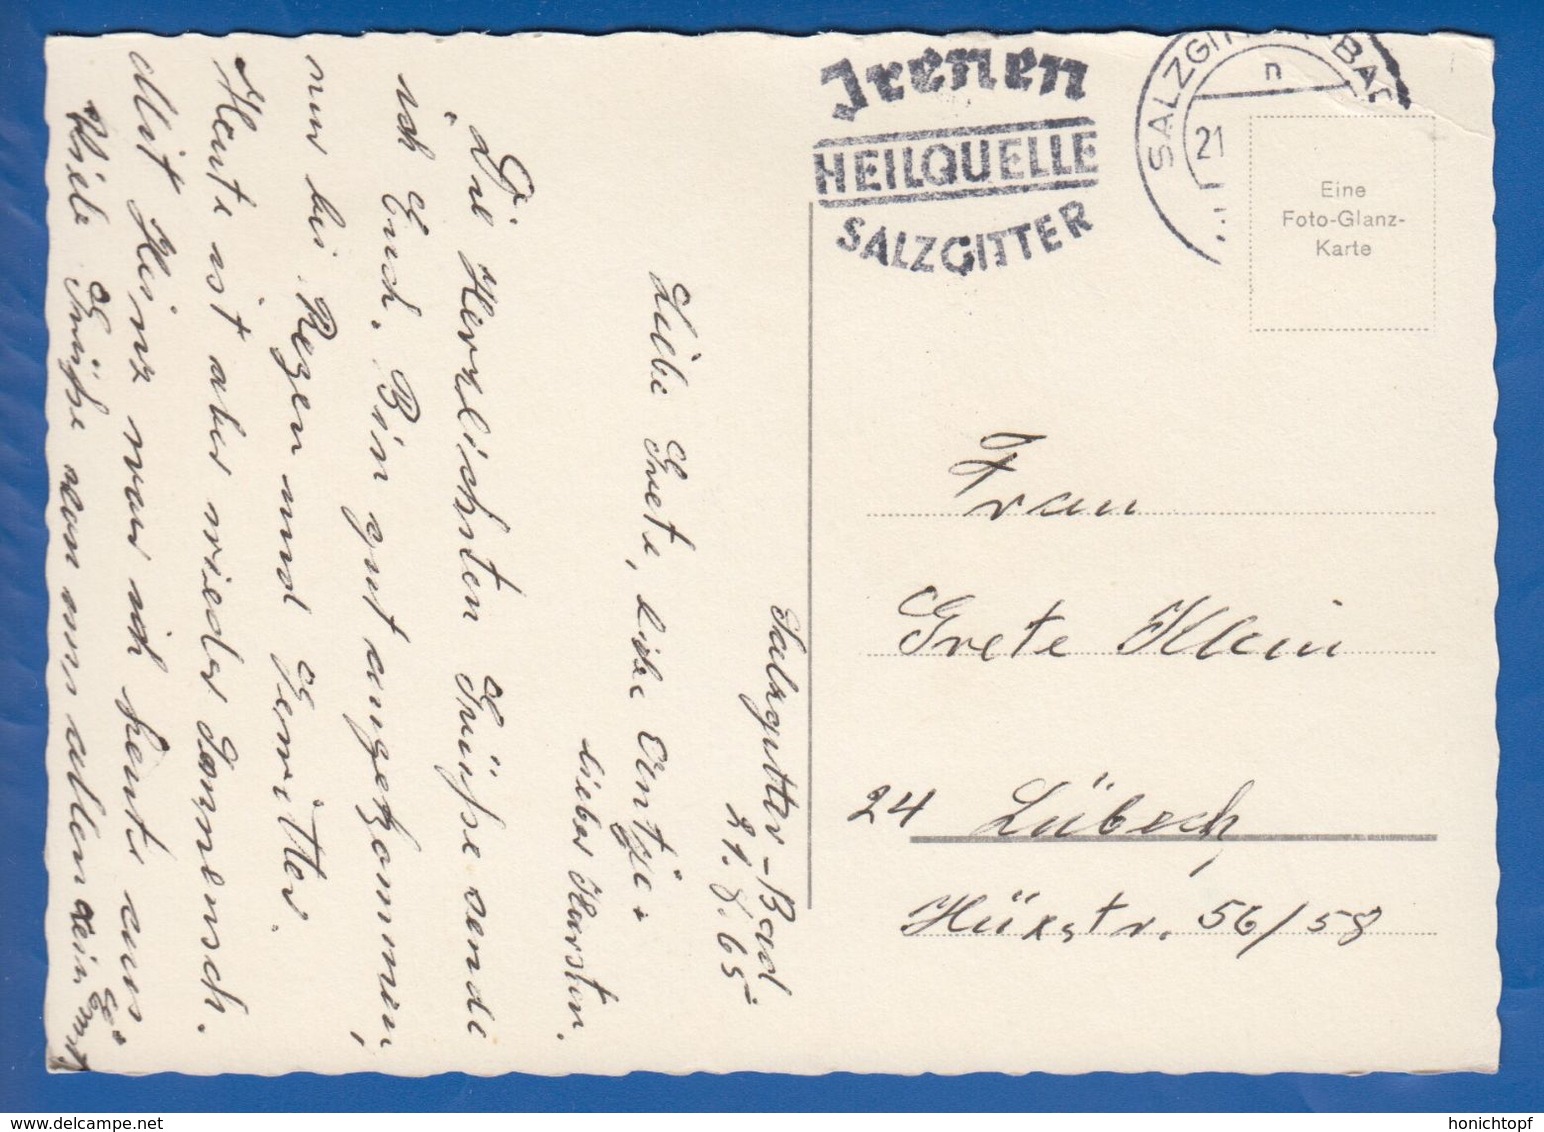 Salzgitter-Bad
21.8.65
Liebe Grete, liebe Antje
lieber Karsten.
Die Herzlichsten Grüße sende
ich Euch. Bin gut angekommen,
nur bei Regen und Gewitter.
Heute ist aber wieder Sonnensch.
Mit Heinz war ich heute aus
Viele Grüße von uns allen dein Ernst
Irenen
HEILQUELLE
SALZGITTER
SALZGITTER-BAD
n
21
Eine
Foto-Glanz-
Karte
Frau
Grete Klein
24 Lübeck,
Hüxstr. 56/58
delcampe.net
honichtopf